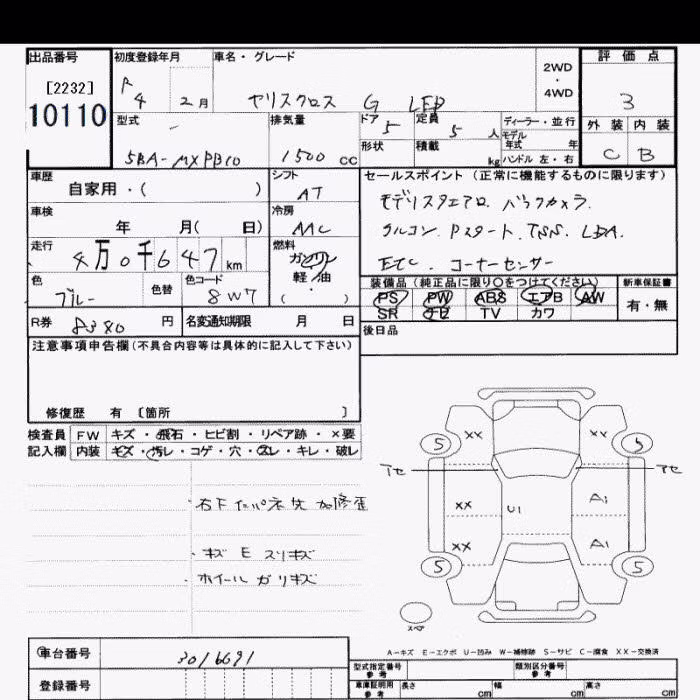 出品番号 初度登録年月 車名・グレード 評価点
[2232] R 4 2月 ヤリスクロス G LED 2WD・4WD 3
10110 外装 内装
型式 排気量 ドア 5 定員 5人 ディーラー・並行 C B
モデル年式 年
5BA-MXPB10 1500cc 形状 積載 kg ハンドル 左・右
車歴 シフト セールスポイント(正常に機能するものに限ります)
自家用・( ) AT モデリスタエアロ. バックカメラ.
車検 冷房
年 月( 日) AAC クルコン. Pスタート. TSS. LDA.
走行 燃料
4万0千647km ガソリン ETC. コーナーセンサー
色 色替 色コード 軽油 装備品(純正品に限り○をつけてください) 新車保証書
ブルー 8W7 ( ・ ) PS PW ABS エアB AW 有・無
SR ナビ TV カワ
R券 8380円 名変通知期限 月 日 後日品
注意事項申告欄(不具合内容等は具体的に記入して下さい)
修復歴 有 〔箇所 〕
検査員 FW キズ・飛石・ヒビ割・リペア跡・×要
記入欄 内装 キズ・汚レ・コゲ・穴・スレ・キレ・破レ
XX XX
5 5
アセ アセ
・右下インパネ先 加修歪
XX U1 A1
・キズ E スリキズ XX A1
・ホイール ガリキズ 5 5
スペア
A-キズ E-エクボ U-凹み W-補修跡 S-サビ C-腐食 XX-交換済
車台番号 3016691 型式指定番号 参考 類別区分番号 参考
登録番号 車庫証明用 参考 長さ cm 幅 cm 高さ cm